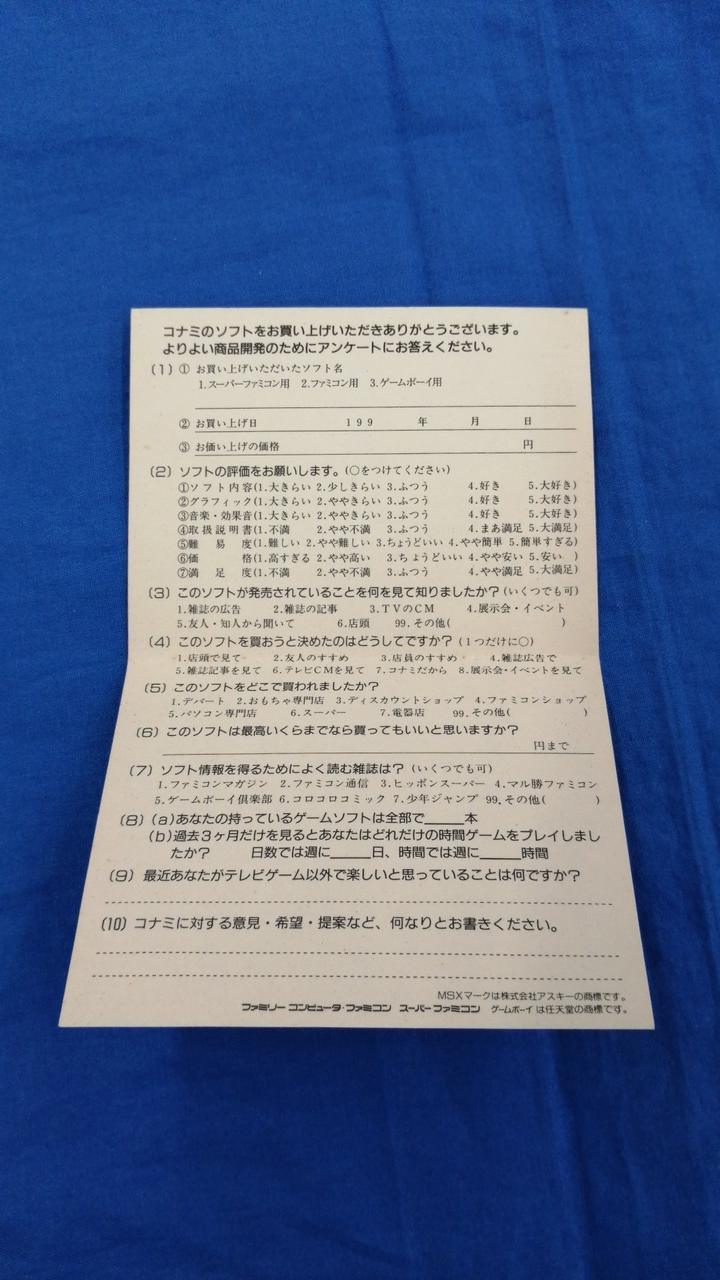 コナミのソフトをお買い上げいただきありがとうございます。
よりよい商品開発のためにアンケートにお答えください。
(1) ① お買い上げいただいたソフト名
1.スーパーファミコン用 2.ファミコン用 3.ゲームボーイ用
② お買い上げ日 199 年 月 日
③ お価い上げの価格 円
(2) ソフトの評価をお願いします。(○をつけてください)
①ソフト内容(1.大きらい 2.少しきらい 3.ふつう 4.好き 5.大好き)
②グラフィック(1.大きらい 2.ややきらい 3.ふつう 4.好き 5.大好き)
③音楽・効果音(1.大きらい 2.ややきらい 3.ふつう 4.好き 5.大好き)
④取扱説明書(1.不満 2.やや不満 3.ふつう 4.まあ満足 5.大満足)
⑤難易度(1.難しい 2.やや難しい 3.ちょうどいい 4.やや簡単 5.簡単すぎる)
⑥価格(1.高すぎる 2.やや高い 3.ちょうどいい 4.やや安い 5.安い )
⑦満足度(1.不満 2.やや不満 3.ふつう 4.やや満足 5.大満足)
(3) このソフトが発売されていることを何を見て知りましたか?(いくつでも可)
1.雑誌の広告 2.雑誌の記事 3.TVのCM 4.展示会・イベント
5.友人・知人から聞いて 6.店頭 99.その他( )
(4) このソフトを買おうと決めたのはどうしてですか?(1つだけに○)
1.店頭で見て 2.友人のすすめ 3.店員のすすめ 4.雑誌広告で
5.雑誌記事を見て 6.テレビCMを見て 7.コナミだから 8.展示会・イベントを見て
(5) このソフトをどこで買われましたか?
1.デパート 2.おもちゃ専門店 3.ディスカウントショップ 4.ファミコンショップ
5.パソコン専門店 6.スーパー 7.電器店 99.その他( )
(6) このソフトは最高いくらまでなら買ってもいいと思いますか?
円まで
(7) ソフト情報を得るためによく読む雑誌は?(いくつでも可)
1.ファミコンマガジン 2.ファミコン通信 3.ヒッポンスーパー 4.マル勝ファミコン
5.ゲームボーイ倶楽部 6.コロコロコミック 7.少年ジャンプ 99.その他( )
(8) (a)あなたの持っているゲームソフトは全部で_____本
(b)過去3ヶ月だけを見るとあなたはどれだけの時間ゲームをプレイしまし
たか? 日数では週に_____日、時間では週に_____時間
(9) 最近あなたがテレビゲーム以外で楽しいと思っていることは何ですか?
(10) コナミに対する意見・希望・提案など、何なりとお書きください。
MSXマークは株式会社アスキーの商標です。
ファミリーコンピュータ・ファミコン スーパーファミコン ゲームボーイ は任天堂の商標です。